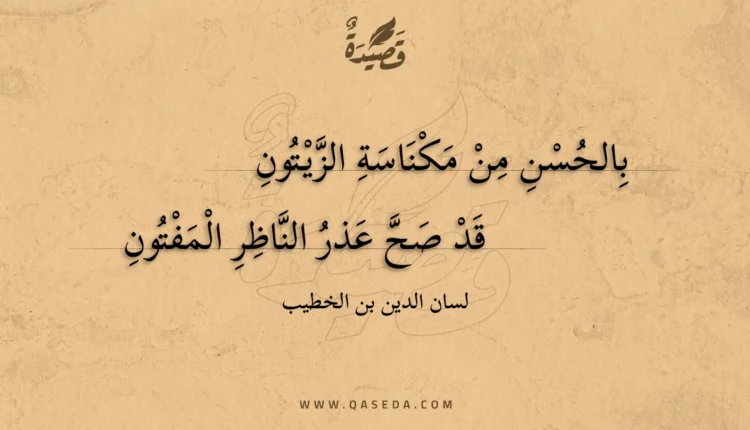 قَصِيدَةٌ
بِالحُسْنِ مِنْ مَكْنَاسَةِ الزَّيْتُونِ
قَدْ صَحَّ عَذرُ النَّاظِرِ الْمَفْتُونِ
لسان الدين بن الخطيب
WWW.QASEDA.COM